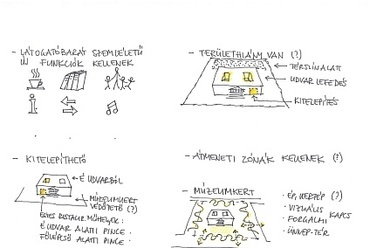 - LÁTOGATÓBARÁT SZEMLÉLETŰ
ÚJ FUNKCIÓK KELLENEK
- TERÜLETHIÁNY VAN (?)
TÉRSZÍN ALATT
UDVAR LEFEDÉS
KITELEPÍTÉS
- KITELEPÍTHETŐ
É UDVARBÓL
MÚZEUMKERT
VÉDŐTETŐ (?)
EGYES RESTAUR. MŰHELYEK:
É UDVAR ALATTI PINCE
FŐLÉPCSŐ ALATTI PINCE
- ÁTMENETI ZÓNÁK KELLENEK (?)
- MÚZEUMKERT
• VIZUÁLIS KAPCS
• FORGALMI
• ÜNNEP-TÉR